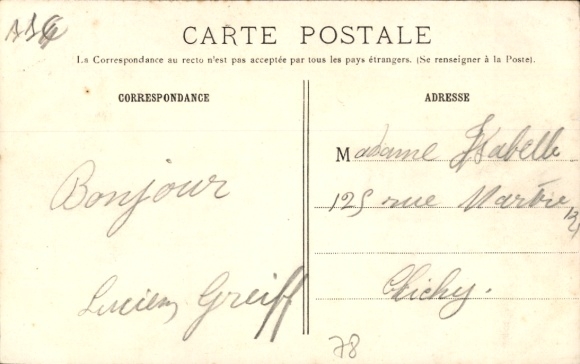 CARTE POSTALE
La Correspondance au recto n'est pas acceptée par tous les pays étrangers. (Se renseigner à la Poste).
CORRESPONDANCE
Bonjour
Lucien Greiff
ADRESSE
Madame Isabelle
125 rue Martre
Clichy.
78